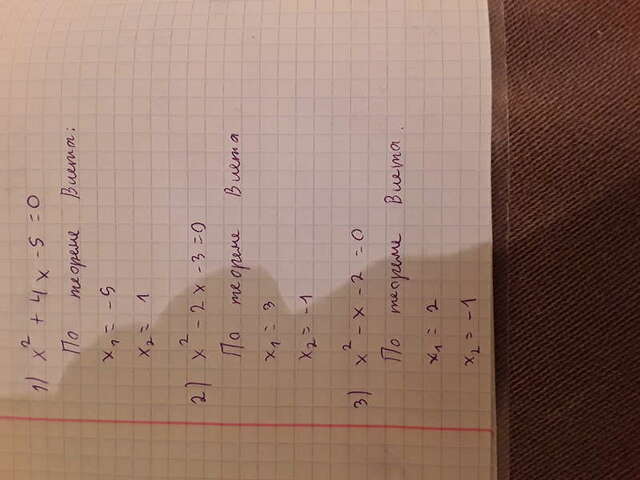 1) x² + 4x - 5 = 0
По теореме Виета:
x₁ = -5
x₂ = 1
2) x² - 2x - 3 = 0
По теореме Виета
x₁ = 3
x₂ = -1
3) x² - x - 2 = 0
По теореме Виета.
x₁ = 2
x₂ = -1